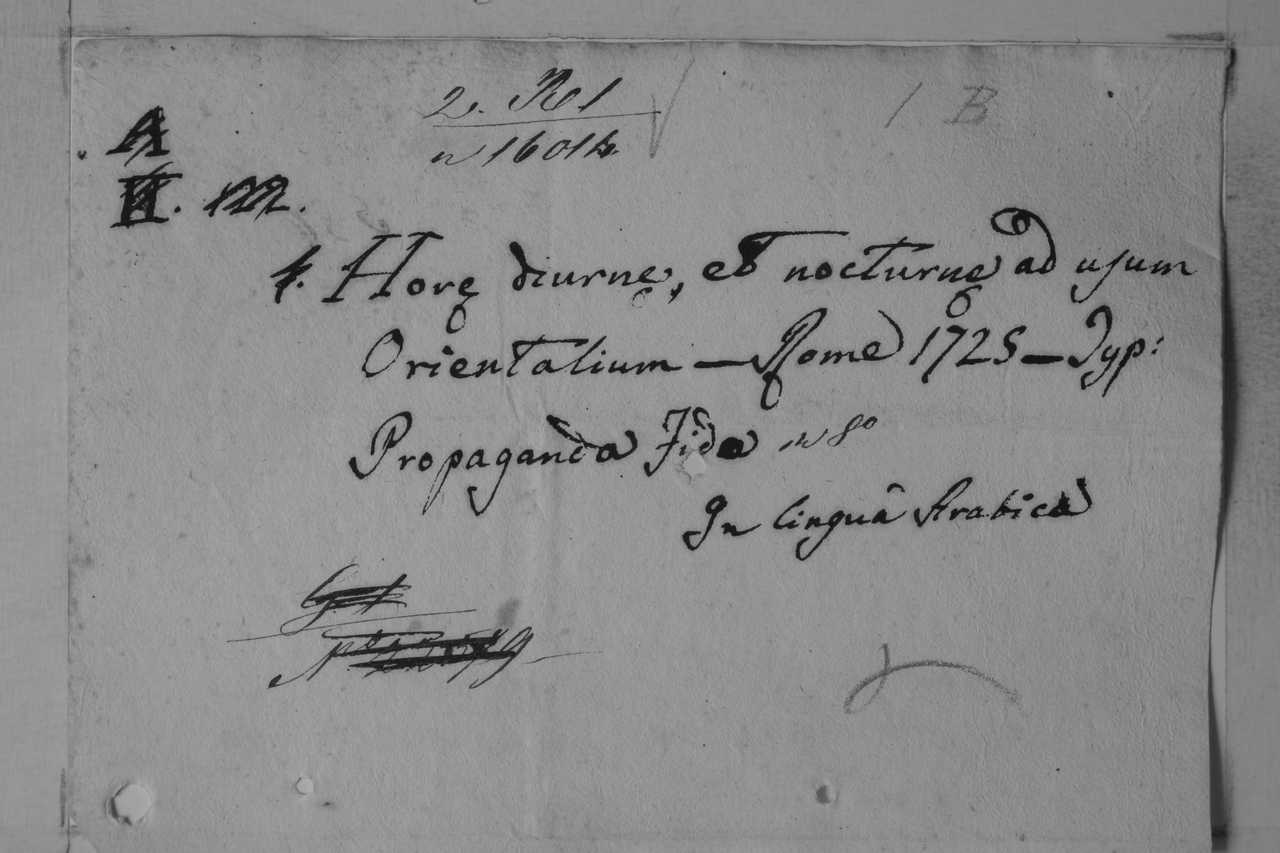 2. Rel
1 B
A
n 1601b
II. m.
4. Horę diurnę, et nocturnę ad usum
Orientalium — Romę 1725 — Typ:
Propaganda Fide in 8o
In linguâ Arabicâ